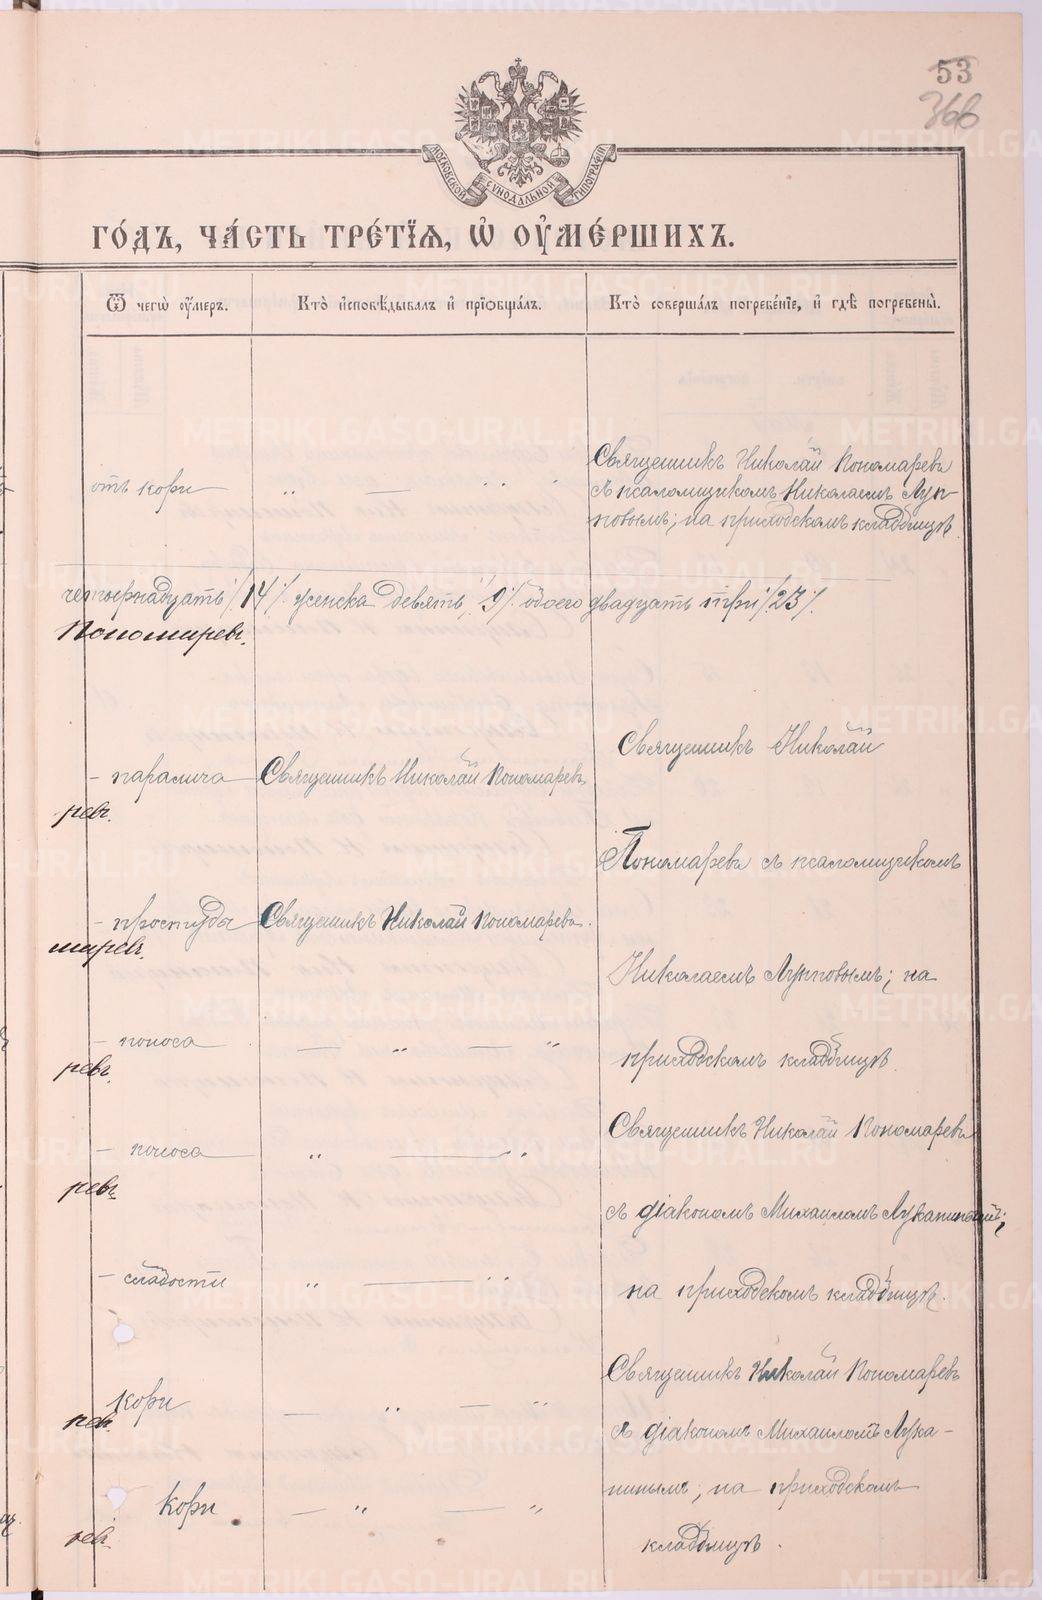 53
366
МОСКОВСКОЙ СѴНОДАЛЬНОЙ ТИПОГРАФІИ
ГО́ДЪ, ЧА́СТЬ ТРЕ́ТЇѦ, Ѡ҆ ОУ҆МЕ́РШИХЪ.
Ѿ чегѡ̀ оу҆́меръ.
Кто̀ и҆сповѣ́дывалъ и҆ прїѡбща́лъ.
Кто̀ соверша́лъ погребе́нїе, и҆ гдѣ̀ погребены̀.
отъ кори
" — " "
Священникъ Николай Пономаревъ
съ псаломщикомъ Николаемъ Луп-
повымъ; на приходскомъ кладбищѣ.
четырнадцать /14/. женска девять /9/. обоего двадцать три /23/.
Пономаревъ.
- паралича
Священникъ Николай Пономаревъ
Священникъ Николай
ревъ.
Пономаревъ съ псаломщикомъ
- простуды
Священникъ Николай Пономаревъ.
маревъ.
Николаемъ Лупповымъ; на
- поноса
— " — "
приходскомъ кладбищѣ
ревъ.
Священникъ Николай Пономаревъ
- поноса
" — "
ревъ.
съ діакономъ Михаиломъ Луканинымъ;
- слабости
" — "
на приходскомъ кладбищѣ.
Священникъ Николай Пономаревъ
кори
— " — "
ревъ.
съ діакономъ Михаиломъ Лука-
нинымъ; на приходскомъ
кори
— " — "
ревъ.
кладбищѣ.
METRIKI.GASO-URAL.RU